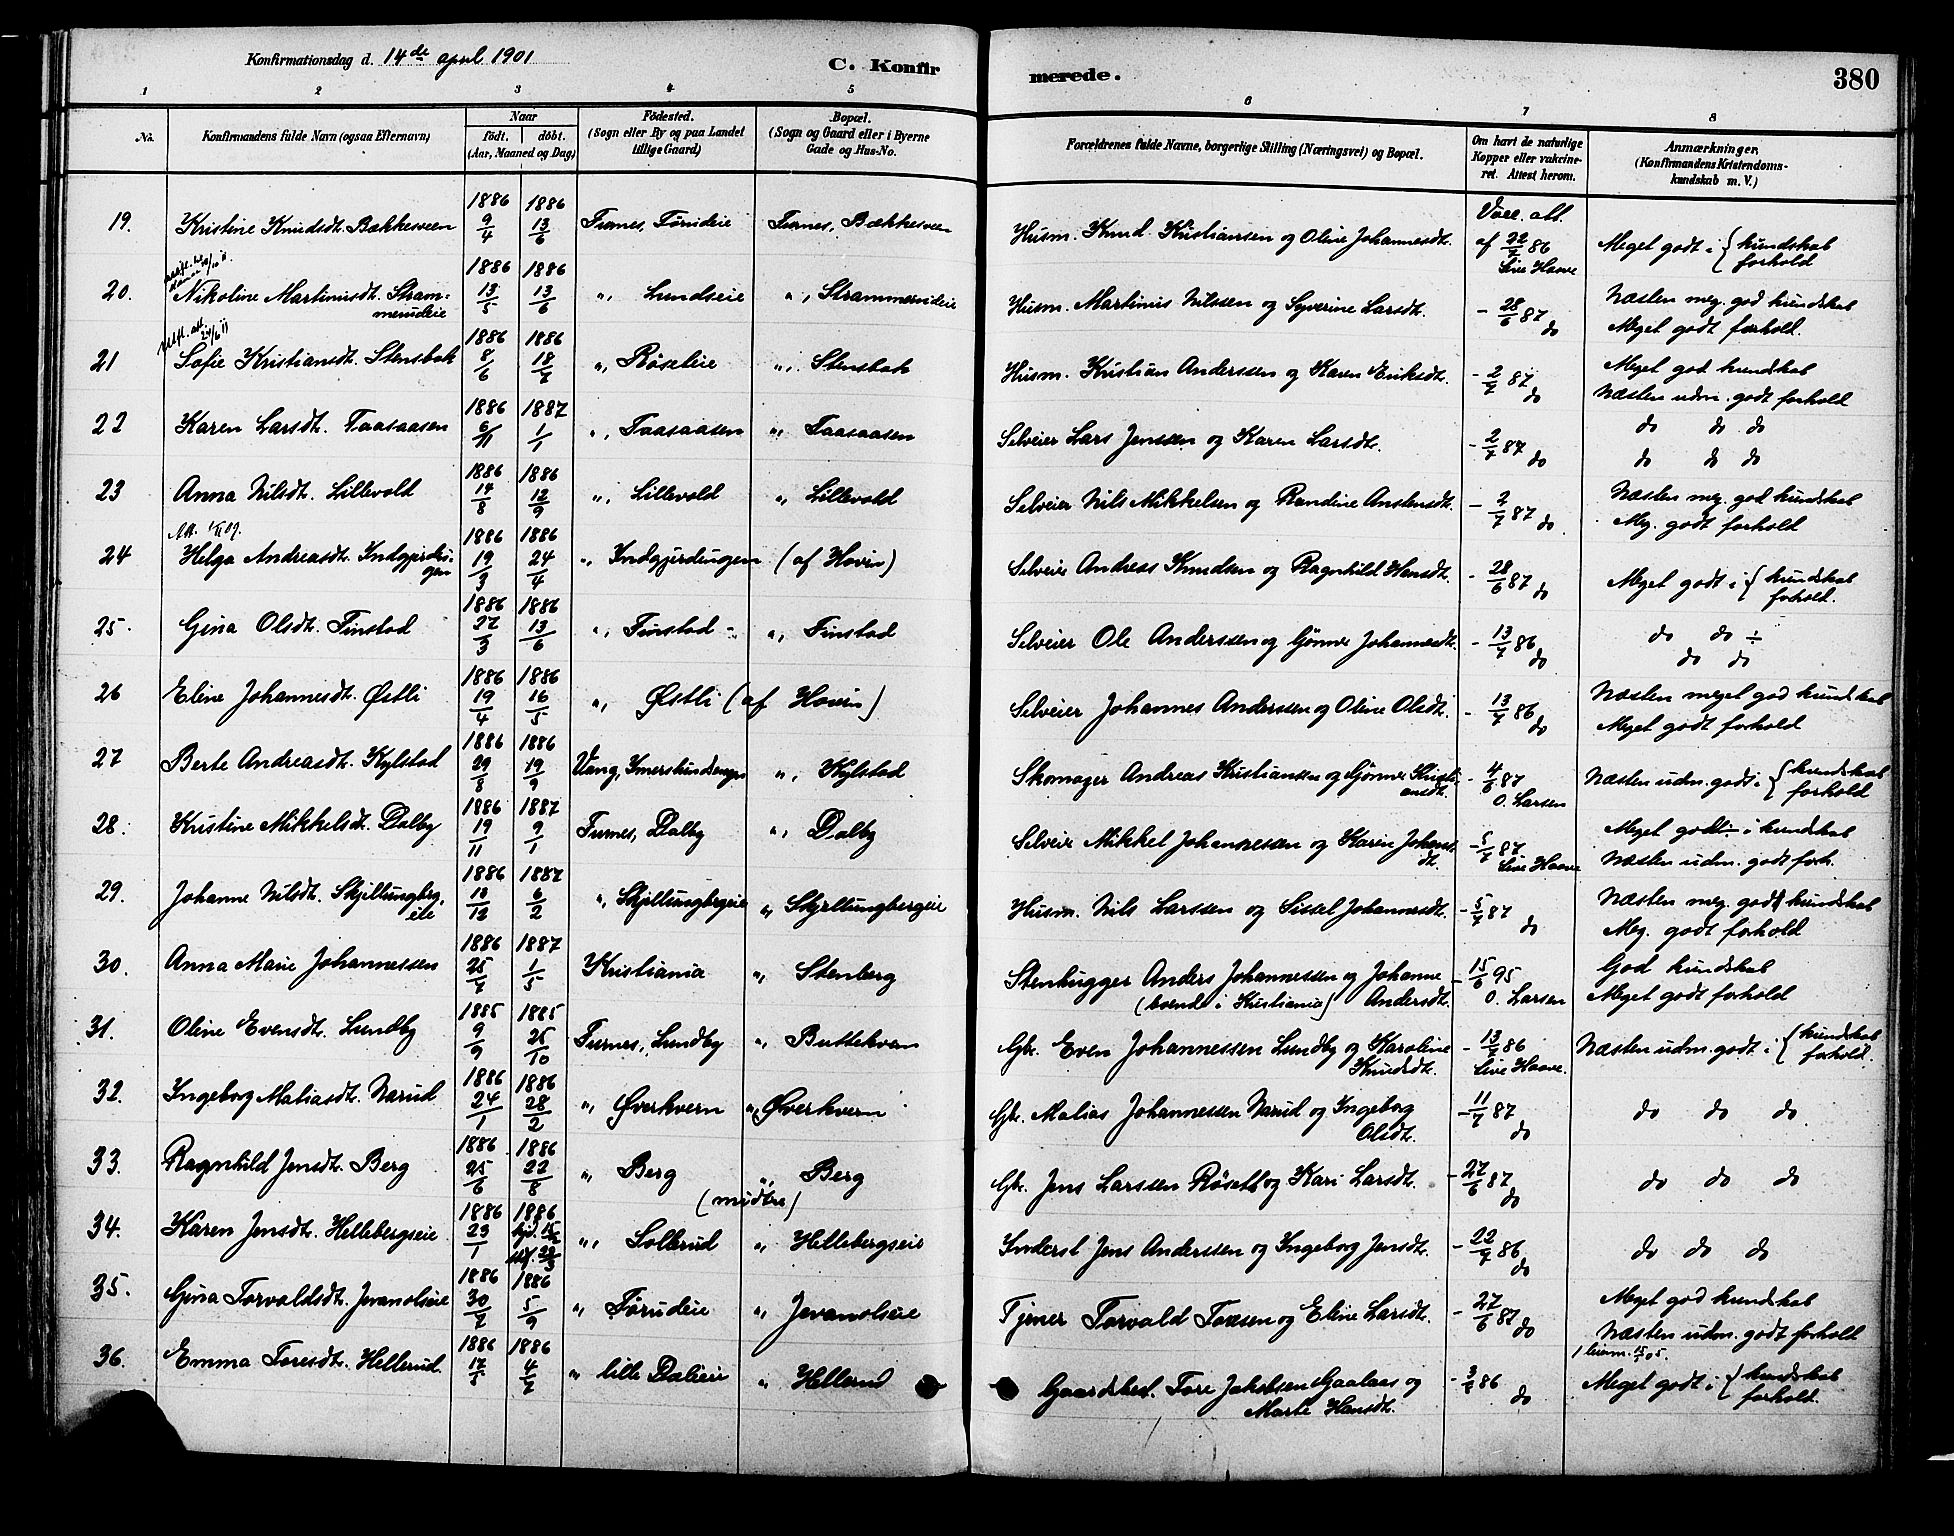 Konfirmationsdag d. 14de april 1901
C. Konfir
merede.
380
1 2 3 4 5 6 7 8
No. Konfirmandens fulde Navn (ogsaa Efternavn) Naar født. døbt. (Aar, Maaned og Dag) Fødested. (Sogn eller By og paa Landet tillige Gaard) Bopæl. (Sogn og Gaard eller i Byerne Gade og Hus-No. Forældrenes fulde Navne, borgerlige Stilling (Næringsvei) og Bopæl. Om havt de naturlige Kopper eller vakcineret. Attest herom. Anmærkninger. (Konfirmandens Kristendomskundskab m. V.)
19. Kristine Knudsdt. Bækkesveen 1886 9/4 1886 13/6 Furnes, Førudeie Furnes, Bækkesveen Husm. Knud Kristiansen og Oline Johannesdt. Vacc. att. af 22/7 86 Sive Haave Meget godt i { kundskab forhold
20. Nikoline Martinusdt. Strammerudeie 1886 13/5 1886 13/6 " Lundseie " Strammerudeie Husm. Martinus Nilssen og Syverine Larsdt. - 28/6 87 do Næsten meg. god kundskab Meget godt forhold.
21 Sofie Kristiansdt. Stensbak 1886 8/6 1886 18/7 " Røseleie " Stensbak Husm. Kristian Anderssen og Karen Eriksdt. - 2/7 87 do Meget god kundskab Næsten udm. godt forhold
22 Karen Larsdt. Taasaasen 1886 6/11 1887 1/1 " Taasaasen " Taasaasen Selveier Lars Jenssen og Karen Larsdt. - 2/7 87 do do do do do do do
23 Anna Nilsdt. Lillevold 1886 14/8 1886 12/9 " Lillevold " Lillevold Selveier Nils Mikkelsen og Randine Anstensdt. - 2/7 87 do Næsten meg. god kundskab Meg. godt forhold
24 Helga Andreasdt. Indgjerdingen 1886 19/3 1886 24/4 " Indgjerdingen (af Hovin) Selveier Andreas Knudsen og Ragnhild Hansdt. - 28/6 87 do Meget godt i { kundskab forhold.
25. Gina Olsdt. Finstad 1886 27/3 1886 13/6 " Finstad " Finstad Selveier Ole Anderssen og Gønner Johannesdt. - 13/7 86 do do do ÷ do do
26 Eline Johannesdt. Østli 1886 19/4 1886 16/5 " Østli (af Hovin) Selveier Johannes Anderssen og Oline Olsdt. - 13/7 86 do Næsten meget god kundskab Meget godt forhold
27 Berte Andreasdt. Kylstad 1886 29/8 1886 19/9 Vang, Imerslundengen " Kylstad Skomager Andreas Kristiansen og Gønner Kristiansdt. - 4/6 87 O. Larsen Næsten udm. godt i { kundskab forhold
28. Kristine Mikkelsdt. Dalby 1886 19/11 1887 9/1 Furnes, Dalby " Dalby Selveier Mikkel Johannessen og Karin Johansdt. - 5/7 87 Sive Haave Meget godt i kundskab Næsten udm. godt forh.
29. Johanne Nilsdt. Skjellungbergeie 1886 13/12 1887 6/2 " Skjellungbergeie " Skjellungbergeie Husm. Nils Larssen og Sissel Johannesdt. - 5/7 87 do Næsten meg. god kundskab Meg. godt forhold
30. Anna Marie Johannessen 1886 25/7 1887 1/5 Kristiania " Stenberg Stenhugger Anders Johannessen og Johanne Andersdt. (boende i Kristiania) - 15/6 95 O. Larsen God kundskab Meget godt forhold
31. Oline Evensdt. Lundby 1885 9/9 1885 25/10 Furnes, Lundby " Buttekvern Gbr. Even Johannessen Lundby og Karoline Knudsdt. - 13/7 86 Sive Haave. Næsten udm. godt i { kundskab forhold.
32. Ingeborg Matiasdt. Narud 1886 24/1 1886 28/2 " Øverkvern " Øverkvern Gbr. Matias Johannessen Narud og Ingeborg Olsdt. - 11/7 87 do do do do
33. Ragnhild Jensdt. Berg 1886 25/6 1886 22/8 " Berg (midtre) " Berg Gbr. Jens Larssen Røset og Kari Larsdt. - 27/6 87 do do do do
34. Karen Jensdt. Hellebergseie 1886 23/1 1886 " Sollerud " Hellebergseie Inderst Jens Anderssen og Ingeborg Jensdt. - 22/7 86 do do do do
35. Gina Torvaldsdt. Jevanolseie 1886 30/7 1886 5/9 " Førudeie " Jevanolseie Tjener Torvald Toresen og Eline Larsdt. - 27/6 87 do Meget god kundskab Næsten udm. godt forhold
36. Emma Toresdt. Hellerud. 1886 17/5 1886 4/7 " lille Dæleie " Hellerud Gaardsbest. Tore Jakobsen Gaalaas og Marte Hansdt. - 3/8 86 do Meget godt i { kundskab forhold.